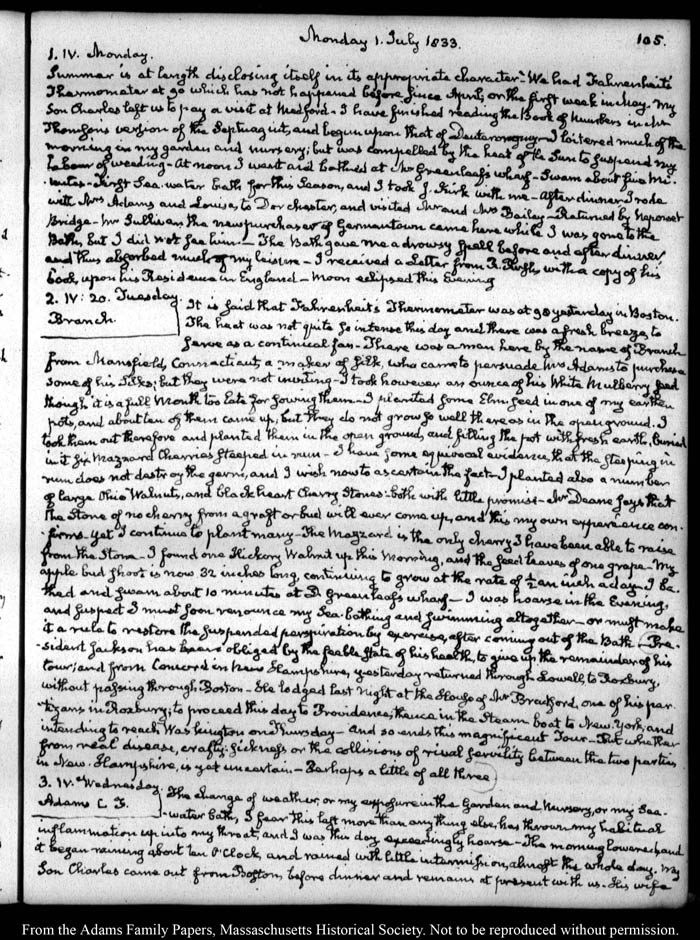 Monday 1. July 1833.
105.
1. IV. Monday.
Summer is at length disclosing itself in its appropriate character. We had Fahrenheit's
Thermometer at 90 which has not happened before since April, or the first week in May. My
Son Charles left us to pay a visit at Medford. I have finished reading the Book of Numbers in
Thomson's version of the Septuagint, and begun upon that of Deuteronomy. I loitered much of the
morning in my garden and nursery; but was compelled by the heat of the Sun to suspend my
labour of weeding. At noon I went and bathed at Mr Greenleaf's wharf. Swam about five mi-
nutes. First Sea-water bath for this Season, and I took J. Kirk with me. After dinner I rode
with Mrs Adams and Louisa, to Dorchester, and visited Mr and Mrs Bailey. Returned by Neponset
Bridge. Mr Sullivan the new purchaser of Germantown came here while I was gone to the
Bath, but I did not see him. The Bath gave me a drowsy spell before and after dinner,
and thus absorbed much of my leisure. I received a Letter from R. Rush, with a copy of his
book, upon his Residence in England. Moon eclipsed this Evening
2. IV: 20. Tuesday.
Branch.
It is said that Fahrenheit's Thermometer was at 98 yesterday in Boston.
The heat was not quite so intense this day and there was a fresh breeze, to
serve as a continual fan. There was a man here by the name of Branch
from Mansfield, Connecticut, a maker of silk, who came to persuade Mrs Adams to purchase
some of his Silks; but they were not inviting. I took however an ounce of his White Mulberry seed
though it is a full Month too late for sowing them. I planted some Elm seed in one of my earthen
pots, and about ten of them came up, but they do not grow so well there as in the open ground. I
took them out therefore and planted them in the open ground, and filling the pot with fresh earth, buried
in it six Mazzard Cherries steeped in rum. I have some equivocal evidence, that the steeping in
rum does not destroy the germ, and I wish now to ascertain the fact. I planted also a number
of large Ohio Walnuts, and black heart Cherry Stones. both with little promise. Mr Deane says that
the Stone of no cherry from a graft or bud will ever come up, and this my own experience con-
firms. Yet I continue to plant many. The Mazzard is the only cherry I have been able to raise
from the Stone. I found one Hickory Walnut up this Morning, and the seed leaves of one grape. My
apple bud shoot is now 32 inches long, continuing to grow at the rate of ½ an inch a day. I ba-
thed and swam about 10 minutes at D. Greenleaf's wharf. I was hoarse in the Evening,
and suspect I must soon renounce my Sea-bathing and swimming altogether. or must make
it a rule to restore the suspended perspiration by exercise, after coming out of the Bath. Pre-
sident Jackson has been obliged by the feeble state of his health, to give up the remainder of his
tour; and from Concord in New Hampshire, yesterday returned through Lowell, to Roxbury,
without passing through Boston. He lodged last night at the House of Mr Bradford, one of his par-
tizans in Roxbury; to proceed this day to Providence; thence in the Steam boat to New-York, and
intending to reach Washington on Thursday. And so ends this magnificent Tour. But whether
from real disease, crafty sickness or the collisions of rival servility between the two parties
in New-Hampshire, is yet uncertain. Perhaps a little of all three
3. IV. Wednesday.
Adams C. F.
The change of weather, or my exposure in the Garden and Nursery, or my Sea-
water bath, I fear this last more than any thing else, has thrown my habitual
inflammation up into my throat, and I was this day exceedingly hoarse. The morning lowered, and
it began raining about ten O'Clock, and rained with little intermission, almost the whole day. My
Son Charles came out from Boston, before dinner and remains at present with us. His wife
From the Adams Family Papers, Massachusetts Historical Society. Not to be reproduced without permission.